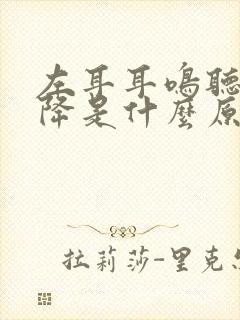 左耳耳鳴聽
降是什麼原
拉莉莎-里克